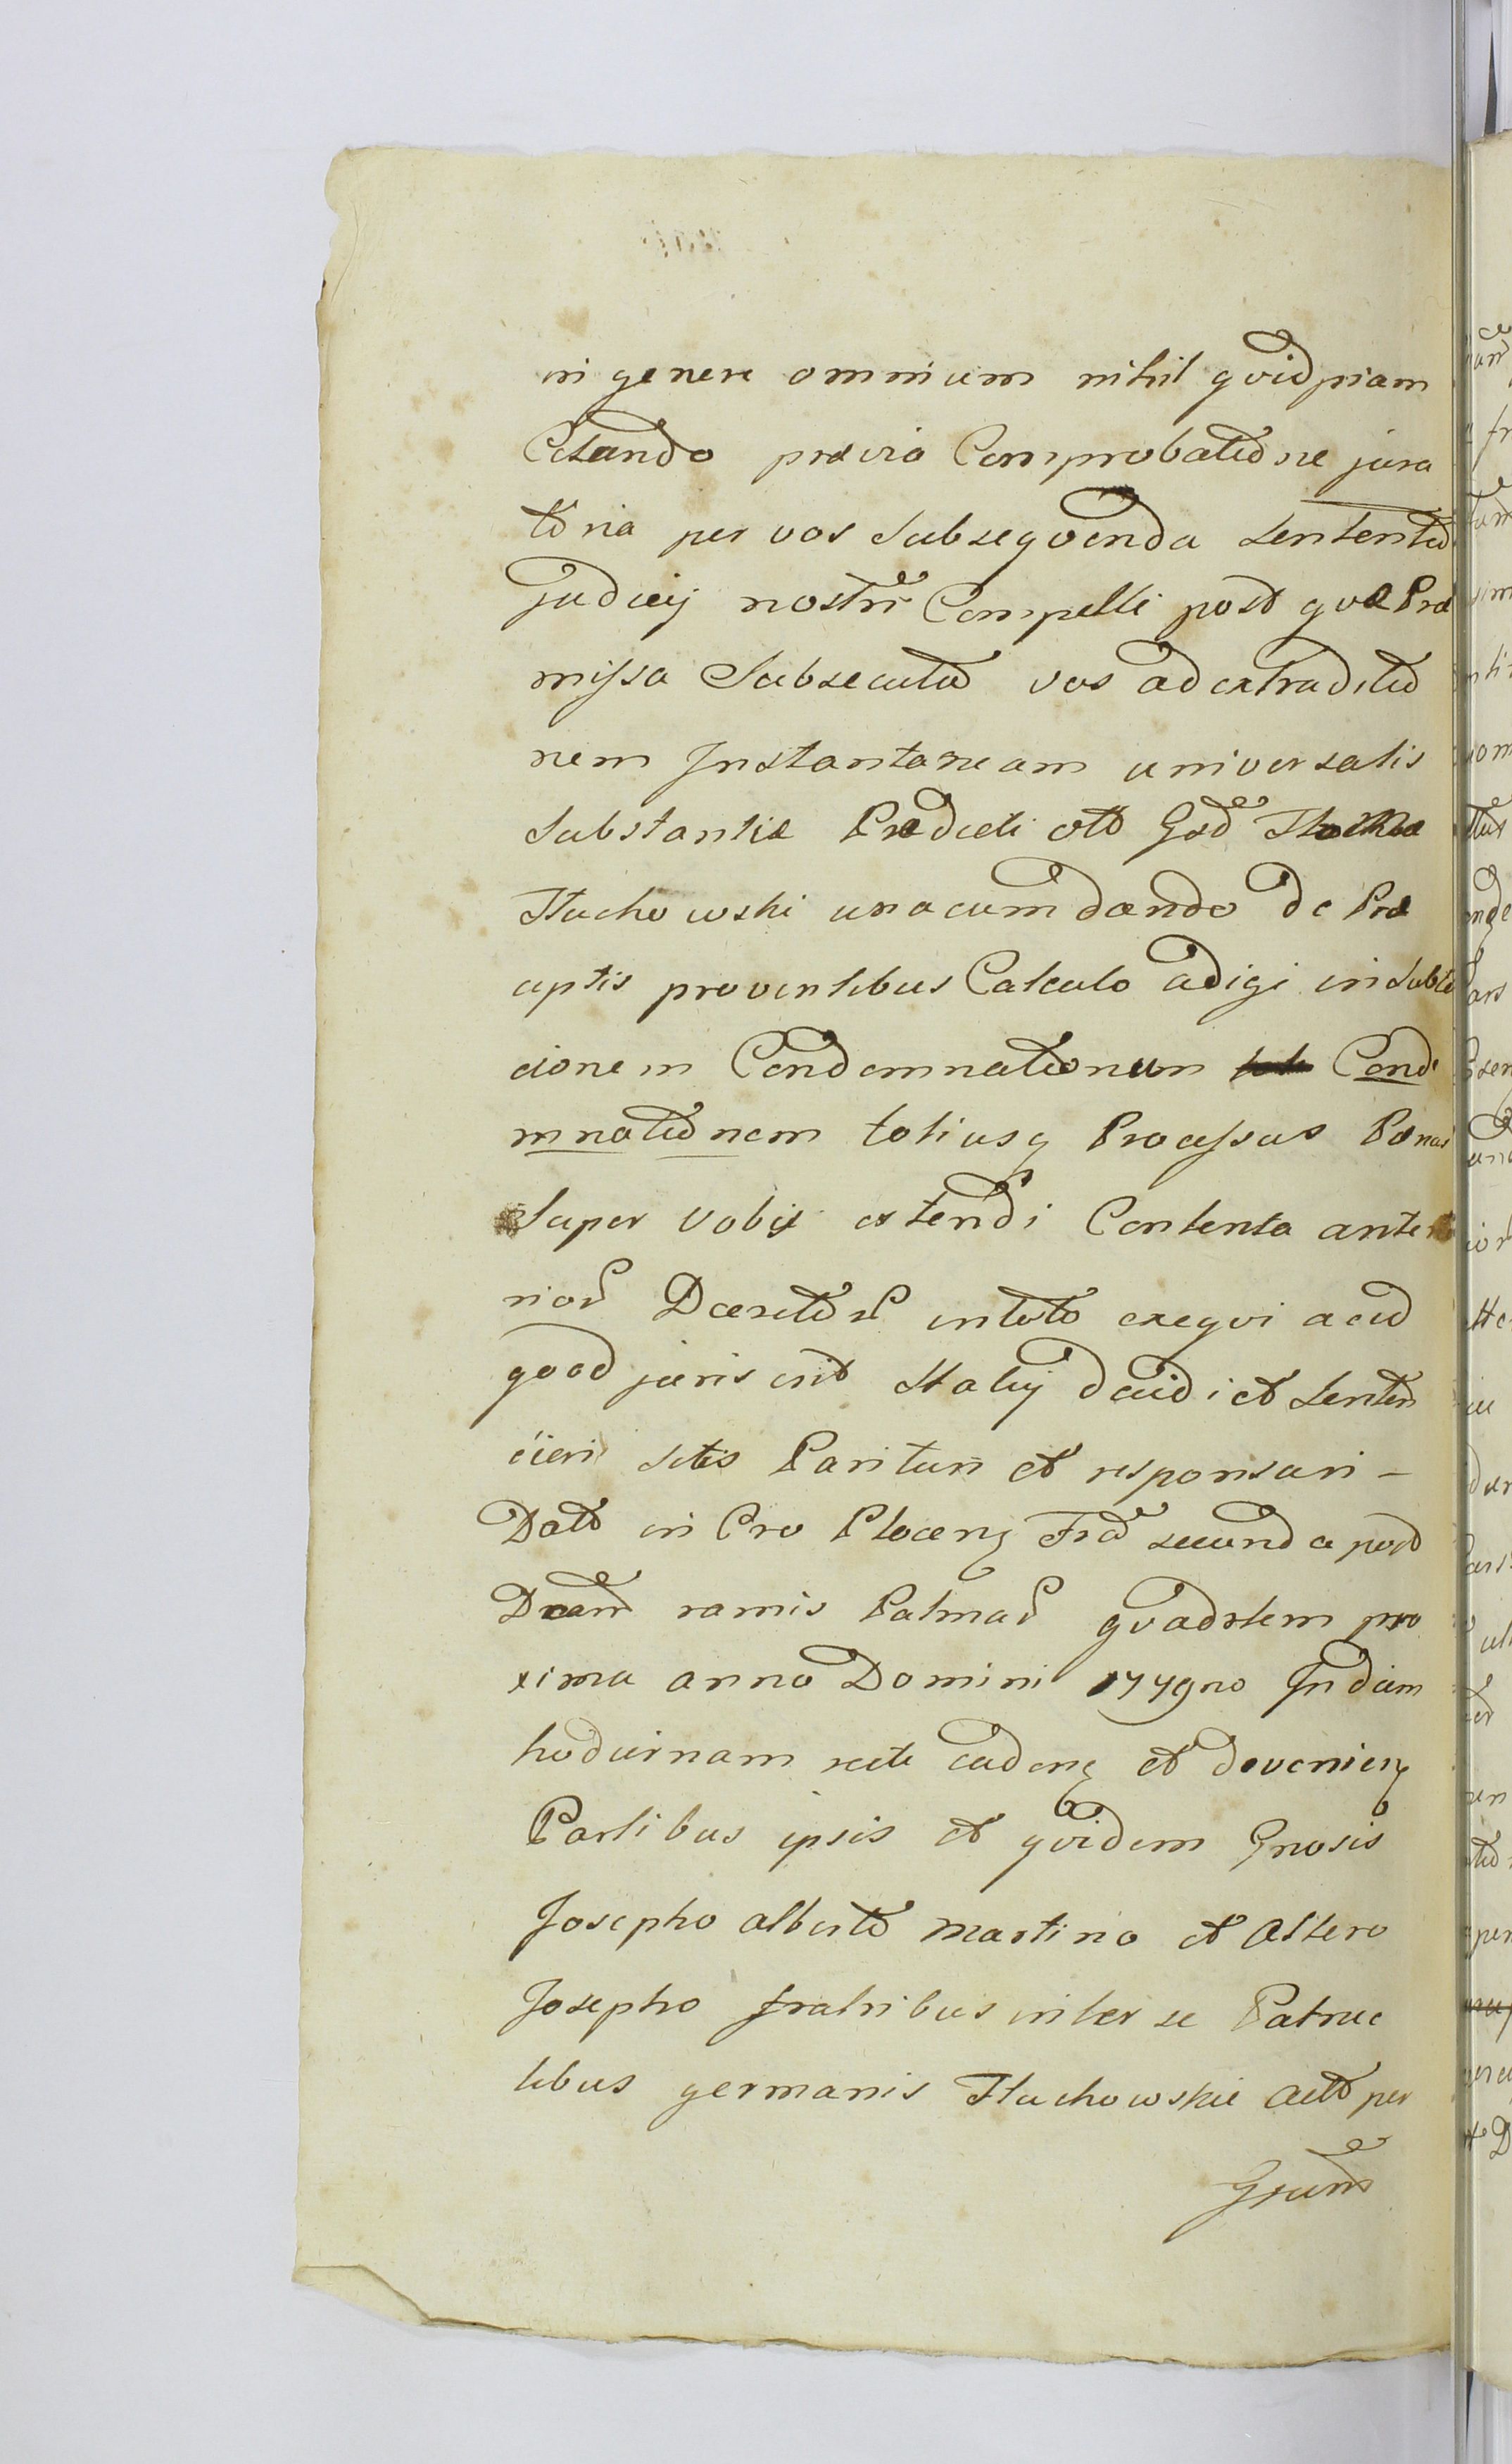 in genere omnium nihil qvidpiam
Celando prævia Comprobatione jura
toria per vos Subseqvenda Sententia
Judicij nostri Compelli post qvæ Præ
missa Subsecuta vos ad extraditio
nem Instantaneam universalis
Substantiæ Prædicti olt Gsd
Tłuchowski unacum dando de Præ
ceptis proventibus Calculo adigi in Sublo
cionem Condemnationum Conde
mnationem totiusq Processus Pænas
Super vobis extendi Contenta ante
rior Decretor in toto exeqvi acid
qvod juris erit Statuj decidi et Senten
cieri Sitis Parituri et responsuri -
Datt in Cro Plocen Fra secunda post
Dcam ramis Palmar qvadrlem pro
xima anno Domini 1779no In diem
hodiernam recte caden et devenien
Partibus ipsis et qvidem Gnosis
Josepho Alberto Martino et Altero
Josepho fratribus inter se Patrue
libus germanis Tłuchowskie Actt per